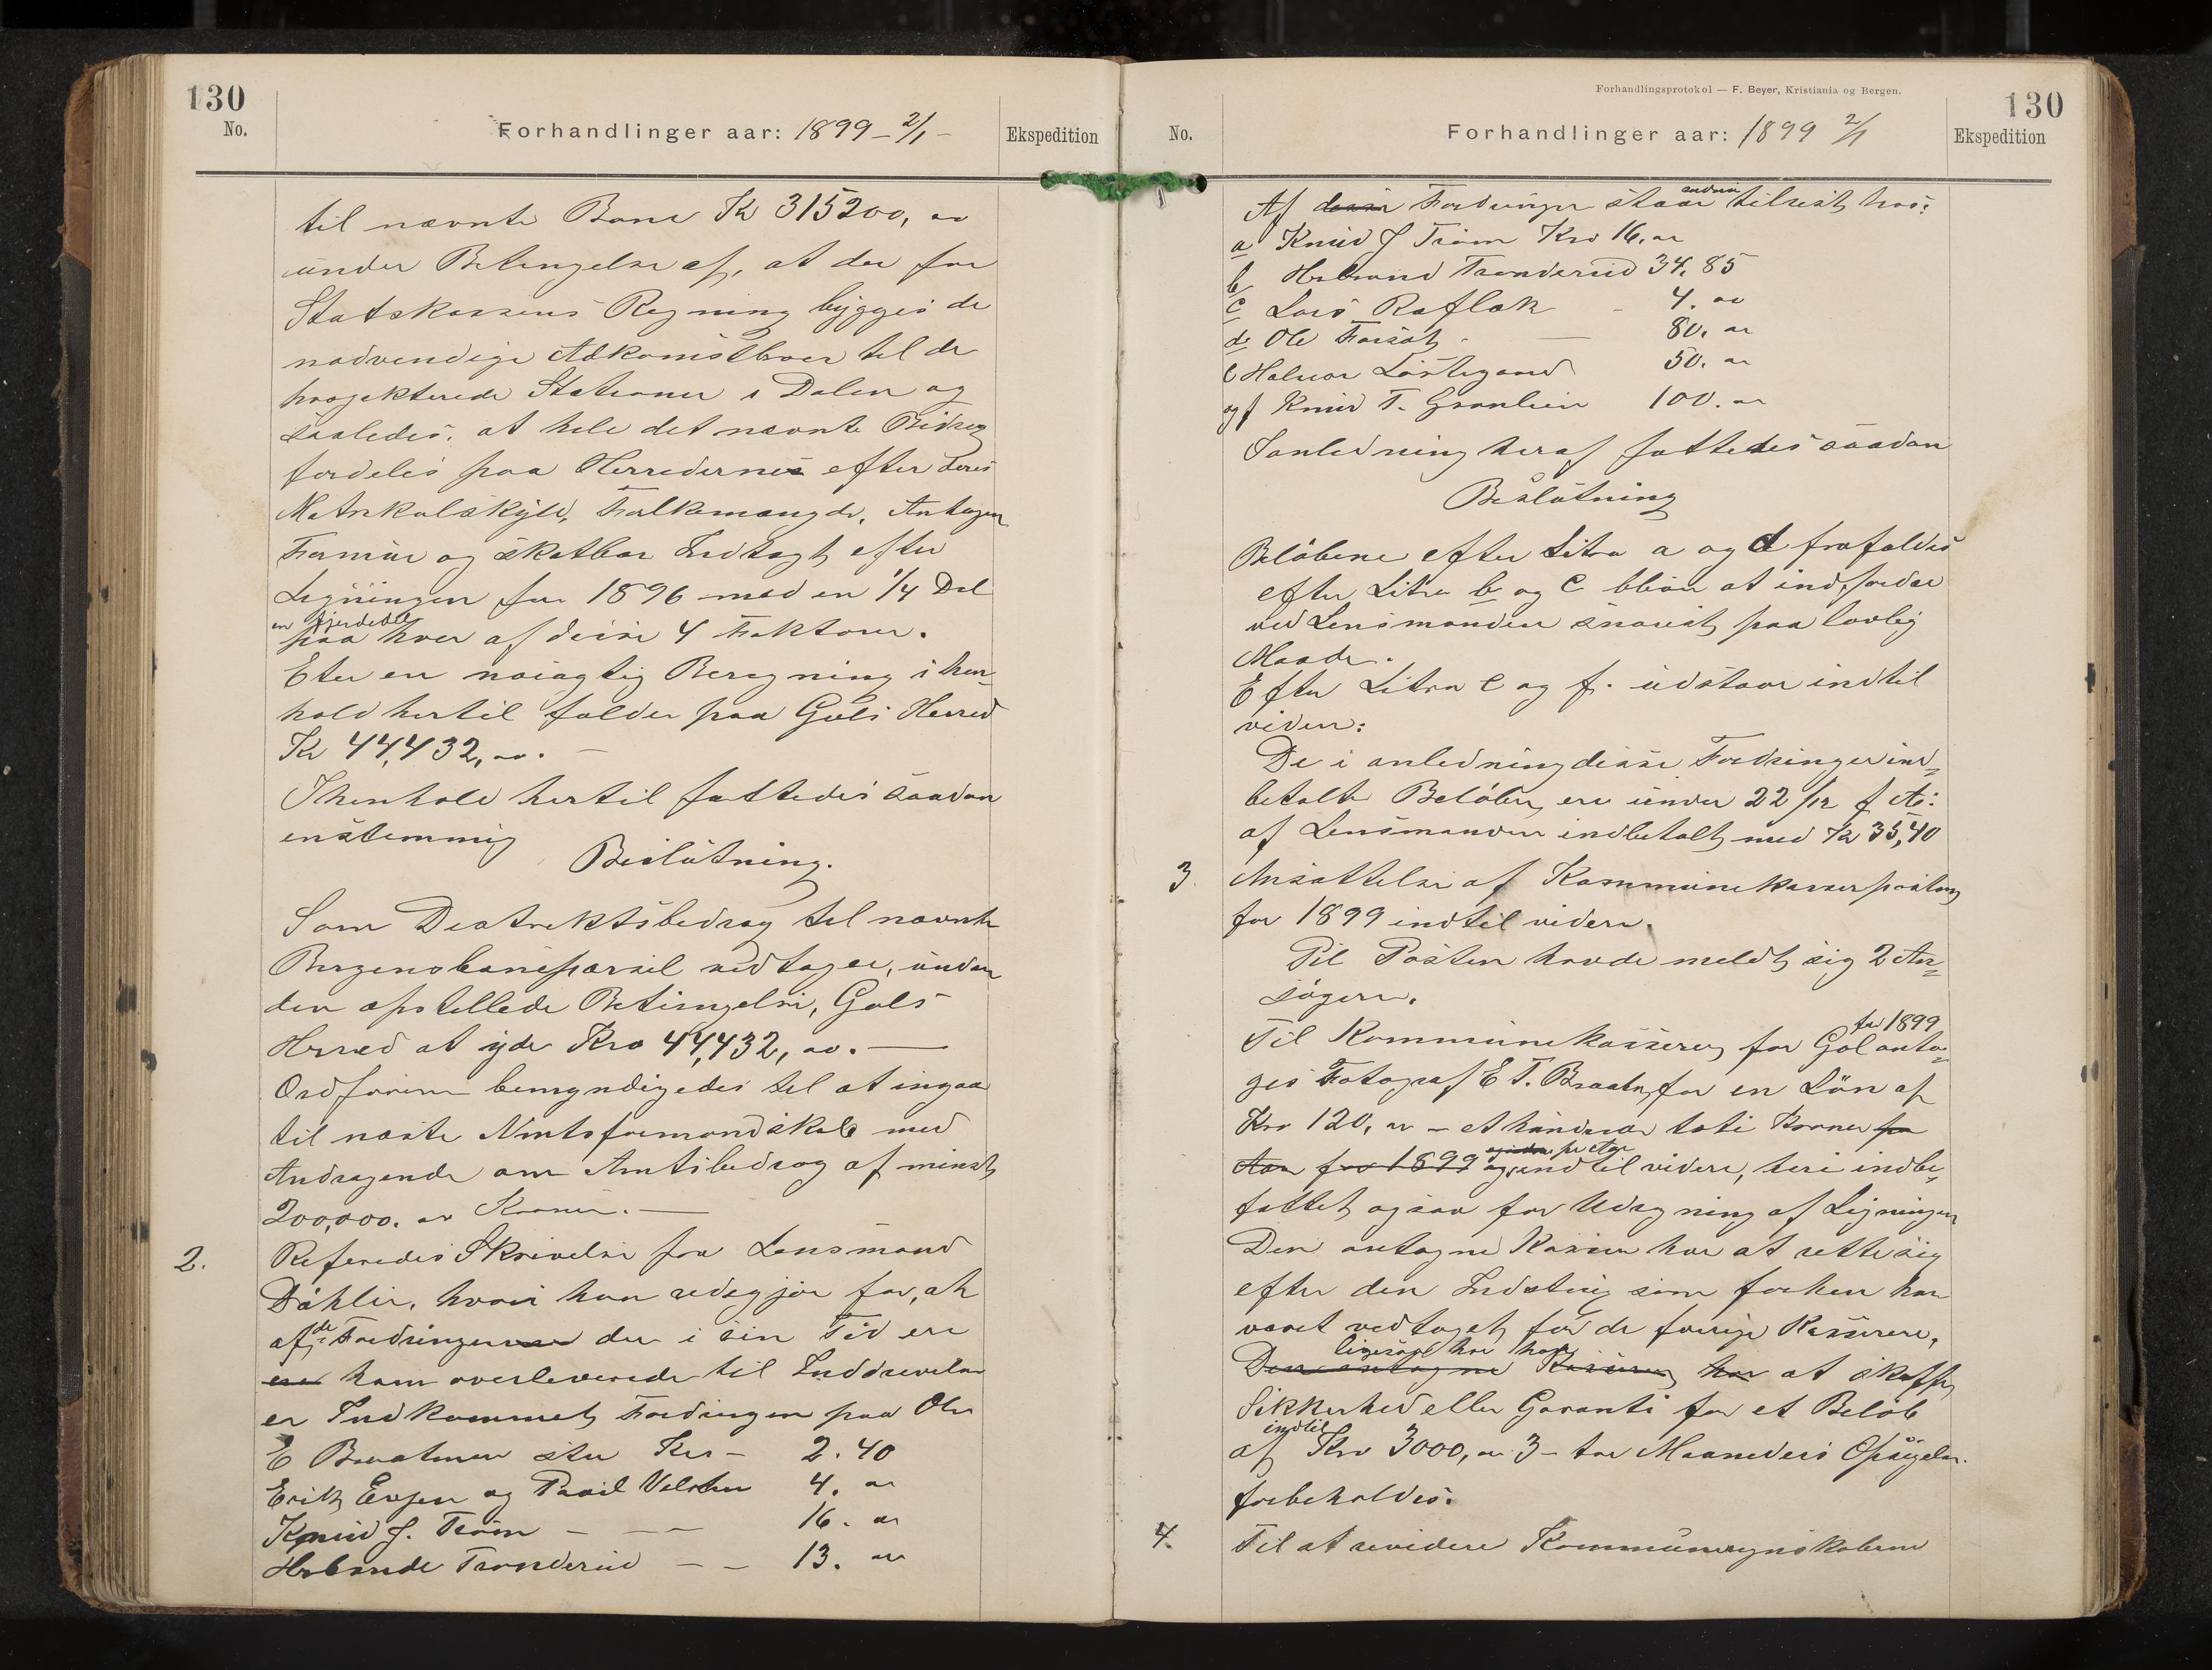 130
No.
Forhandlinger aar: 1899 - 2/1 -
Ekspedition
til nævnte Bane Kr 315200, oo
under Betingelse af, at der for
Statskassens Regning bygges de
nødvendige Adkomstveier til de
projekterede Stationer i Dalen og
saaledes, at hele det nævnte Bidrag
fordeles paa Herrederne efter deres
Matrikulskyld, Folkemængde, Antagen
Formue og skatbar Indtægt efter
Ligningen for 1896 med en 1/4 Del
en fjerdedel
paa hver af disse 4 Faktorer.
Efter en nøiagtig Beregning i hen-
hold hertil falder paa Gols Herred
Kr 44,432, oo. -
I henhold hertil fattedes saadan
enstemmig
Beslutning.
Som Distriktsbidrag til nævnte
Bergensbaneparsel vedtages, under
den opstillede Betingelse, Gols
Herred at yde Kro 44,432, oo. -
Ordføreren bemyndigedes til at ingaa
til næste Amtsformandskab med
Andragende om Amtsbidrag af mindst
200,000. oo Kroner. -
2.
Referedes Skrivelse fra Lensmand
Dahler, hvori han redegjør for, at
af de Fordringer der i sin Tid ere
ham overleverede til Inddrivelse
er Indkommet Fordringen paa Ole
E Braatmen stor Kr - 2. 40
Erik Evjen og Paul Velstun 4. oo
Knud J. Trøim - - - 16. oo
Hrbrande Tranderud - - 13. oo
Forhandlingsprotokol — F. Beyer, Kristiania og Bergen.
130
No.
Forhandlinger aar: 1899 2/1
Ekspedition
Af disse Fordringer staar endnu tilrest hos:
a Knud J Trøim Kro 16. oo
b Hrbrand Tranderud 34. 85
c Lars Roflak - 4. oo
d Ole - 80. oo
e Halvor 50. oo
og f Knud T. Grønlien 100. oo
I anledning heraf fattedes saadan
Beslutning
Beløbene efter Litra a og d frafaldes
efter Litra b og c blive at indfordre
ved Lensmanden snarest paa lovlig
Maade.
Efter Litra e og f. udstaar indtil
videre:
De i anledning disse Fordringer ind-
betalte Beløber, ere under 22/12 f A:
af Lensmanden indbetalt med Kr 35,40
3.
Ansættelse af Kommunekasserposten
for 1899 indtil videre.
Til Posten havde meldt sig 2 An-
søgere.
Til Kommunekasserer for Gol for 1899 anta-
ges Fotograf E T. Braaten for en Løn af
Kro 120, oo - et hundrede toti Kroner pr
Aar for 1899 og pr Aar indtil videre, heri indbe-
fattet ogsaa for Udregning af Ligningen
Den antagne Kasserer har at rette sig
efter den Indstrux som forhen har
været vedtaget for de forrige Kasserere,
ligesom har han
Den antagne Kasserer har at skaffe
Sikkerhed eller Garanti for et Beløb
indtil
af Kro 3000, oo 3 - tre Maaneders Opsigelse
forbeholdes.
4.
Til at revidere Kommuneregnskaberne